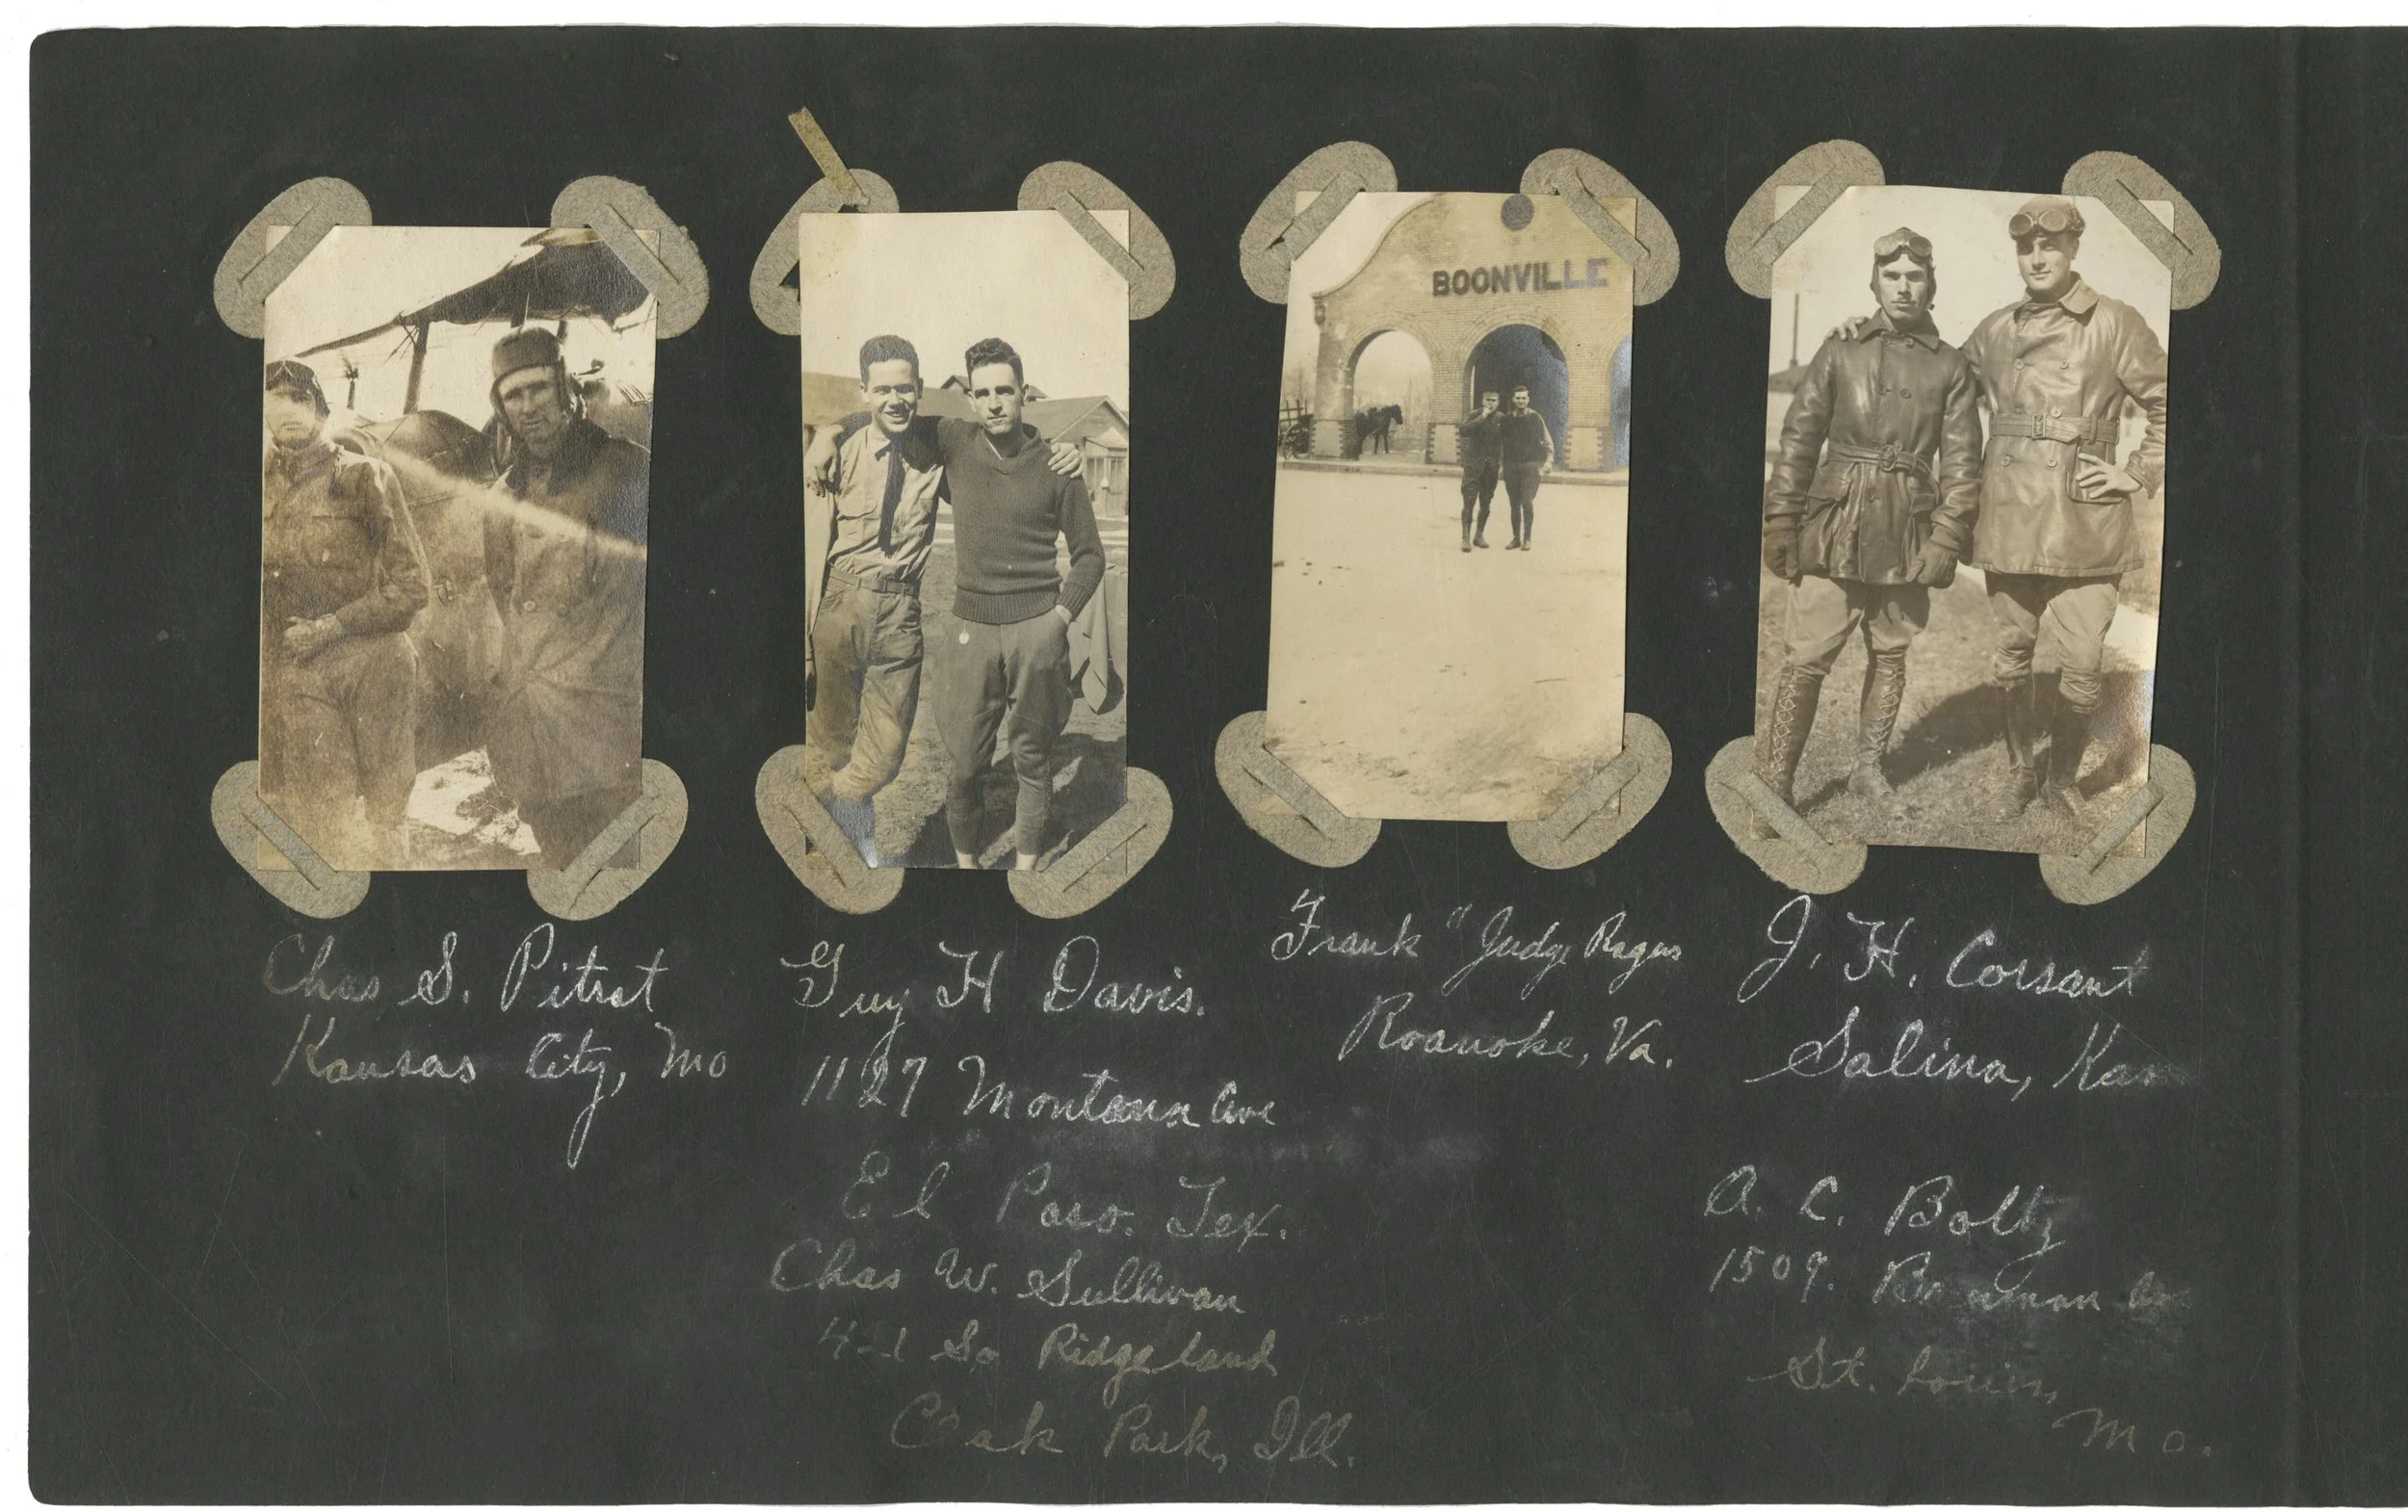 BOONVILLE
Chas S. Pitrat
Kansas City, Mo
Guy H Davis.
1127 Montana Ave
El Paso. Tex.
Chas W. Sullivan
421 So Ridgeland
Oak Park, Ill.
Frank "Judge
Roanoke, Va.
J. H. Corsant
Salina, Kan
A. C. Boltz
1509.
St. Louis,
Mo.